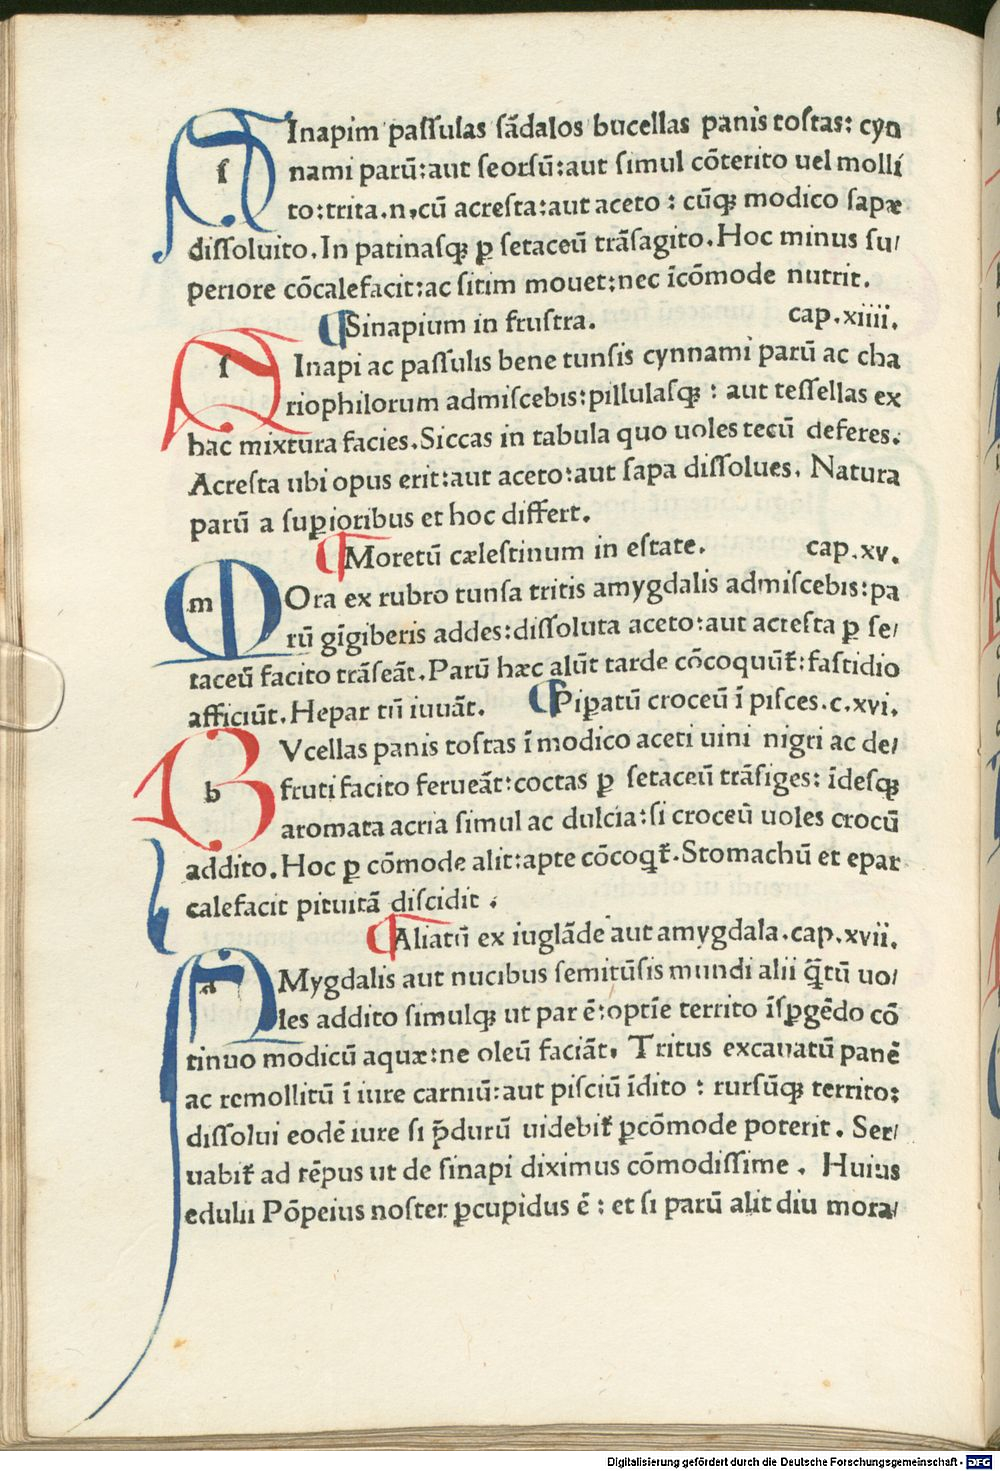 SInapim paſſulas ſādalos bucellas panis toſtas: cyn
nami parū: aut ſeorſū: aut ſimul cōterito uel molli
to: trita.n, cū acreſta: aut aceto : cūqꝫ modico ſapæ
diſſoluito. In patinaſqꝫ ꝑ ſetaceū trāſagito. Hoc minus ſu/
periore cōcalefacit: ac ſitim mouet: nec īcōmode nutrit.
¶Sinapium in fruſtra. cap.xiiii.
SInapi ac paſſulis bene tunſis cynnami parū ac cha
riophilorum admiſcebis: pillulaſqꝫ : aut teſſellas ex
hac mixtura facies. Siccas in tabula quo uoles tecū deferes.
Acreſta ubi opus erit: aut aceto: aut ſapa diſſolues. Natura
parū a ſuꝑioribus et hoc differt.
¶Moretū cæleſtinum in eſtate. cap.xv.
MOra ex rubro tunſa tritis amygdalis admiſcebis: pa
rū gīgiberis addes: diſſoluta aceto: aut acreſta ꝑ ſe/
taceū facito trāſeāt. Parū hæc alūt tarde cōcoquūt᷑: faſtidio
afficiūt. Hepar tū iuuāt. ¶Piꝑatū croceū ī piſces.c.xvi.
BVcellas panis toſtas ī modico aceti uini nigri ac de/
fruti facito ferueāt: coctas ꝑ ſetaceū trāſiges: īdeſqꝫ
aromata acria ſimul ac dulcia: ſi croceū uoles crocū
addito. Hoc ꝑ cōmode alit: apte cōcoq̄t᷑. Stomachū et epar
calefacit pituitā diſcidit .
¶Aliatū ex iuglāde aut amygdala. cap.xvii.
AMygdalis aut nucibus ſemitūſis mundi alii q̄tū uo/
les addito ſimulqꝫ ut par ē: optīe territo īſꝑgēdo cō
tinuo modicū aquæ: ne oleū faciāt. Tritus excauatū panē
ac remollitū ī iure carniū: aut piſciū īdito : rurſūqꝫ territo:
diſſolui eodē iure ſi p̄durū uidebit᷑ ꝑcōmode poterit. Ser/
uabit᷑ ad tēpus ut de ſinapi diximus cōmodiſſime . Huius
edulii Pōpeius noſter ꝑcupidus ē : et ſi parū alit diu mora/
Digitalisierung gefördert durch die Deutsche Forschungsgemeinschaft - DFG